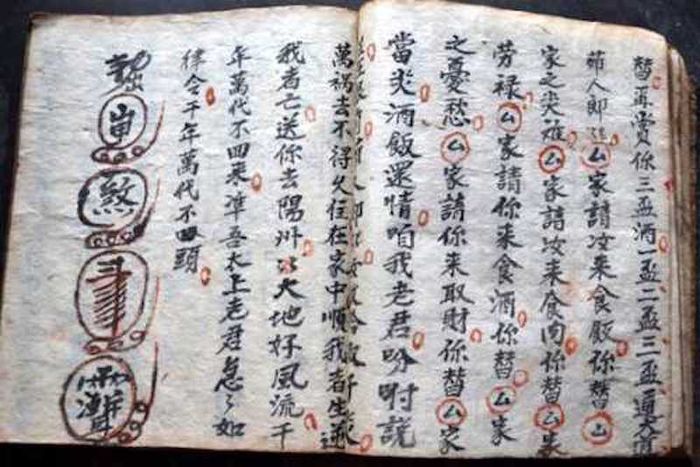 替再賞你三盃酒一盃二盃三盃通大道
茆人即進厶家請汝来食飯你替厶
家之災难厶家請汝来食肉你替厶家
劳禄厶家請你来食酒你替厶家
之憂愁厶家請你来取財你替厶家
當災酒飯還情咱我老君吩咐說
萬禍去不得久住在家中順我者生逆
我者亡送你去陽州大地好風流千
年萬代不回来準吾太上老君急々如
律令千年萬代不回頭
煞